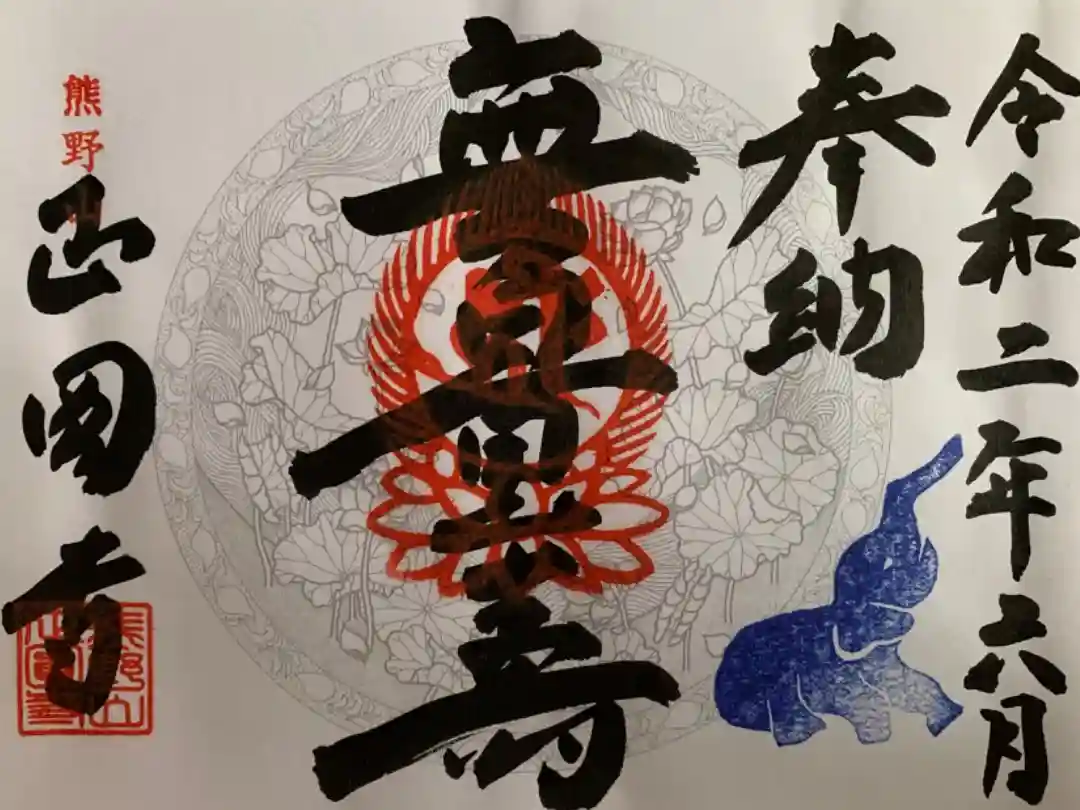 令和二年六月
奉納
無量壽
熊野
寺